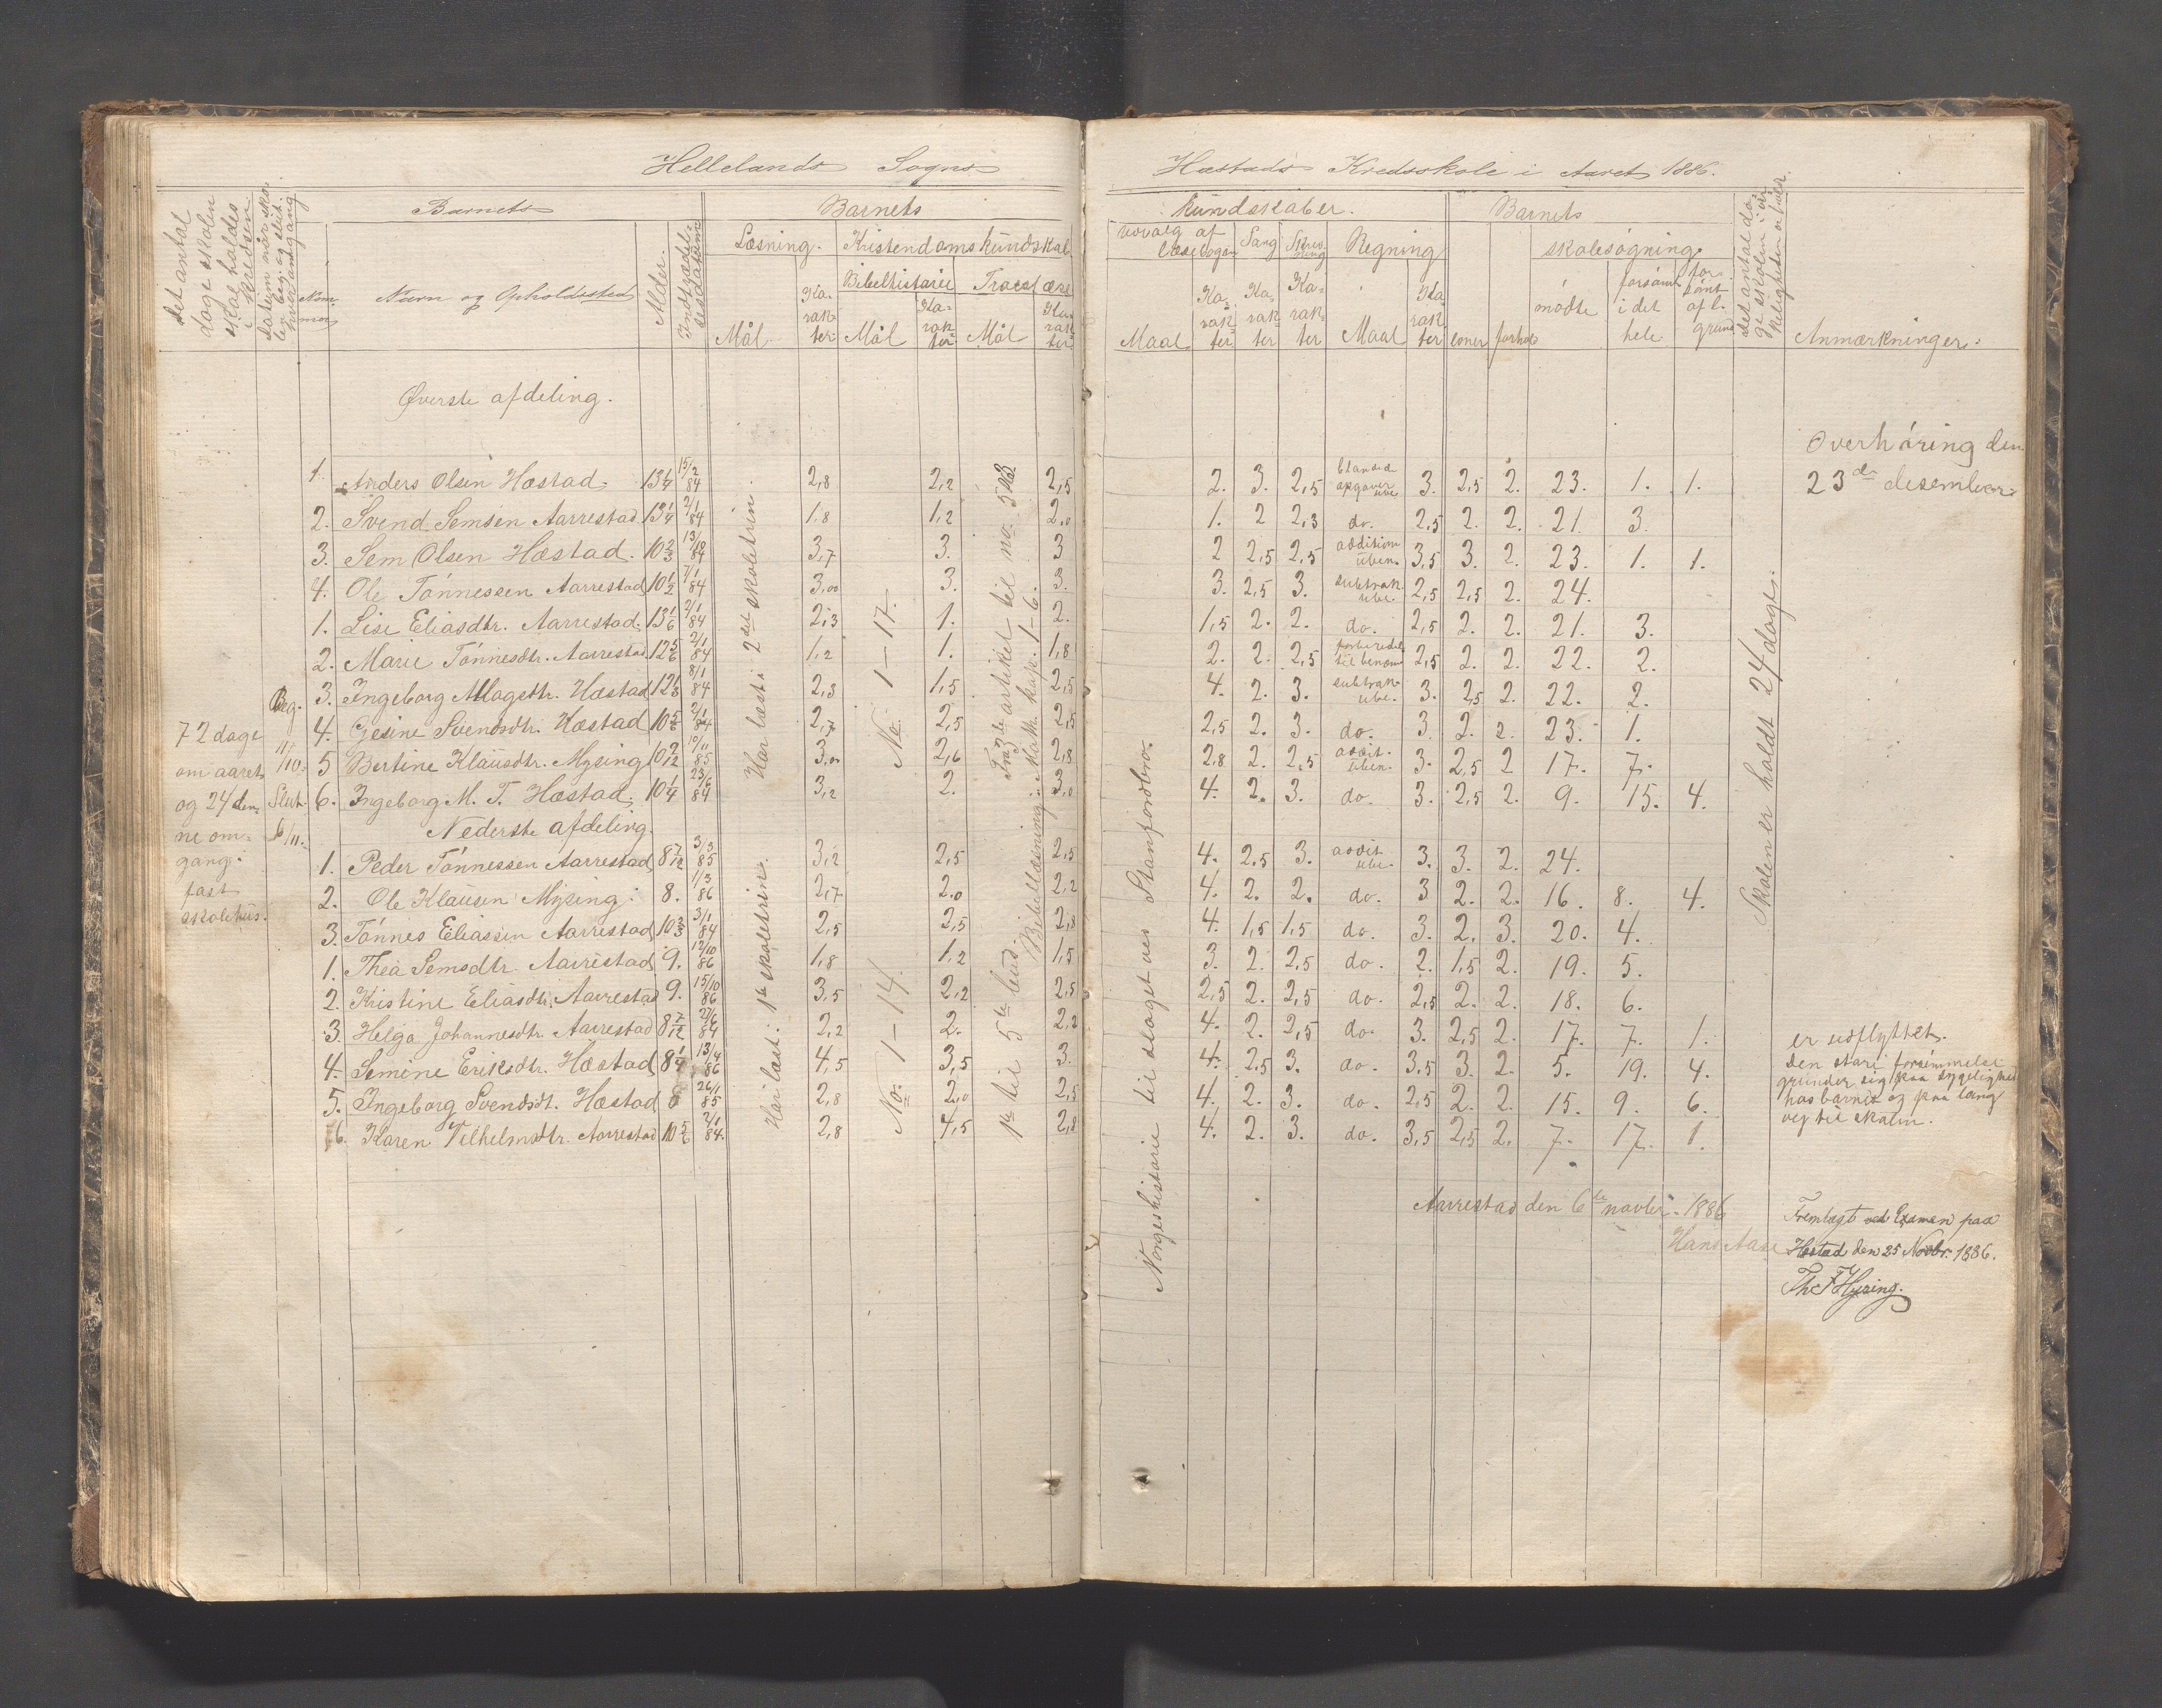 Hellelands Sogns
Hæstads Kredsskole i Aaret 1886.
det antal dage skolen skal holdes i kredsen
datum når skolen beg. og slut. hver omgang
Nommer
Barnets
Navn og Opholdssted
Alder.
Indtrædelsesdatum
Barnets
Læsning.
Mål
Karakter
Kristendomskundskab
Bibelhistorie
Mål
Karakter
Troeslære
Mål
Karakter
kundskaber.
udvalg af læsebogen
Maal
Karakter
Sang
Karakter
Skrivning
Karakter
Regning
Maal
Karakter
Barnets
evner
forhold
skolesøgning.
mødte
forsømt i det hele
forsømt af l. grund
det antal dage skolen i virkeligheden er holdt
Anmærkninger.
Øverste afdeling.
1. Anders Olsen Hæstad. 13 1/4 15/2 84 2,8 2,2 2,5 2. 3. 2,5 blandede opgaver ube. 3. 2,5 2. 23. 1. 1.
2. Svend Semsen Aarrestad 13 1/4 2/1 84 1,8 1,2 2,0 1. 2 2,3 do. 2,5 2. 2. 21. 3.
3. Sem Olsen Hæstad. 10 2/3 13/10 84 3,7 3. 3 2 2,5 2,5 addition uben. 3,5 3. 2. 23. 1. 1.
4. Ole Tónnessen Aarrestad 10 1/2 7/1 84 3,00 3. 3. 3. 2,5 3. subtrak. ube. 2,5 2,5 2. 24.
1. Lise Eliasdtr. Aarrestad. 13 1/6 2/1 84 2,3 1. 2. 1,5 2. 2. do. 2,5 2. 2. 21. 3.
2. Marie Tónnesdtr. Aarrestad 12 5/6 2/1 84 1,2 1. 1,8 2. 2. 2,5 forberedel. til benævn 2,5 2. 2. 22. 2.
3. Ingeborg Mllagettr. Hæstad 12 1/3 8/1 84 2,3 1,5 2,5 4. 2. 3. subtrak. ube. 3. 2,5 2. 22. 2.
4. Gesine Svendsdtr. Hæstad 10 5/6 2/1 84 2,7 2,5 2,5 2,5 2. 3. do. 3. 2. 2. 23. 1.
5 Bertine Klausdtr. Mysing 10 7/12 10/11 85 3,00 2,6 2,8 2,8 2. 2,5 addit. uben. 3. 2,5 2 17. 7.
6. Ingeborg M. T. Hæstad. 10 1/4 23/6 84 3,2 2. 3,0 4. 2. 3. do. 3. 2,5 2. 9. 15. 4.
Nederste afdeling.
1. Peder Tónnessen Aarrestad 8 7/12 3/3 85 3,2 2,5 2,5 4. 2,5 3. addit. ube. 3. 3. 2. 24.
2. Ole Klausen Mysing. 8. 1/3 86 2,7 2,0 2,2 4. 2. 2. do. 3 2. 2. 16. 8. 4.
3. Tónnes Eliassen Aarrestad 10 2/3 3/1 84 2,5 2,5 2,8 4. 1,5 1,5 do. 3. 2. 3. 20. 4.
1. Thea Semsdtr. Aarrestad 9. 12/10 86 1,8 1,2 1,5 3. 2. 2,5 do. 2. 1,5 2. 19. 5.
2. Kristine Eliasdtr. Aarrestad 9. 15/10 86 3,5 2,2 2,5 2,5 2. 2,5 do. 2,5 2. 2. 18. 6.
3. Helga Johannesdtr. Aarrestad 8 7/12 27/6 84 2,2 2. 2,2 4. 2. 2,5 do. 3. 2,5 2. 17. 7. 1. er udflyttet.
4. Semine Eriksdtr. Hæstad 8 1/4 13/4 86 4,5 3,5 3. 4. 2,5 3. do. 3,5 3. 2. 5. 19. 4.
5. Ingeborg Svendsdt. Hæstad 8 26/1 85 2,8 2,0 2,5 4. 2. 3. do. 2,5 2. 2. 15. 9. 6.
6. Karen Vilhelmsdtr. Aarrestad 10 5/6 2/1 84. 2,8 4,5 2,8 4. 2. 3. do. 3,5 2,5 2. 7. 17. 1.
72 dage
om aaret
og 24 den-
ne om-
gang.
fast
skolehus.
Beg.
11/10.
Slut.
6/11.
Har læst i 2det skoletrin.
No. 1 – 17.
Fra 3die artikel til no. 5
Bibellæsning: Math. kap. 1–6.
Har læst i 1ste skoletrin.
No. 1 – 14.
1ste til 5te bud.
Norgeshistorie til slaget ved Stanfordbro.
Skolen er holdt 24 dage.
Overhøring den
23de desember.
den store forsømmelse
grunder sig paa sygelighed
hos barnet og paa lang
vej til skolen.
Aarrestad den 6te novbr. 1886
Hans Aase
Fremlagt ved Examen paa
Hæstad den 25 Novbr. 1886.